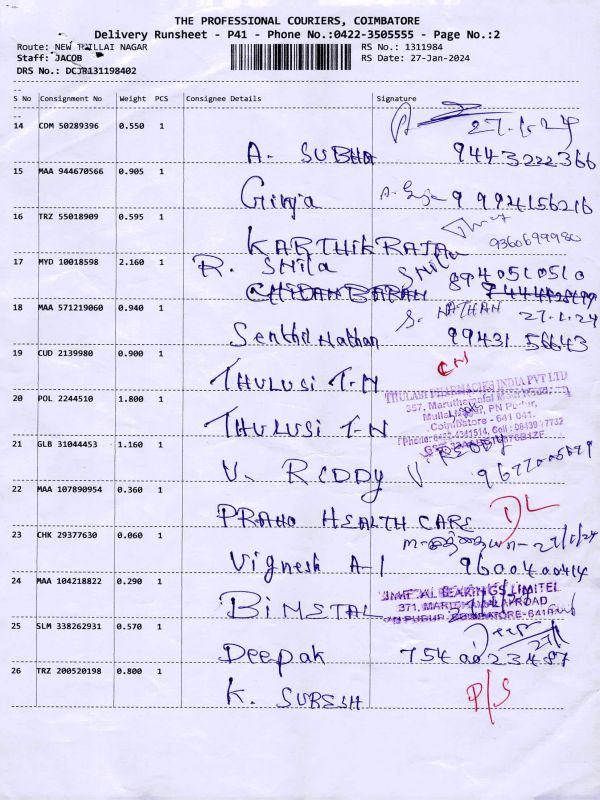 THE PROFESSIONAL COURIERS, COIMBATORE
Delivery Runsheet - P41 - Phone No.:0422-3505555 - Page No.:2
Route: NEW THILLAI NAGAR RS No.: 1311984
Staff: JACOB RS Date: 27-Jan-2024
DRS No.: DCJB131198402
S No Consignment No Weight PCS Consignee Details Signature
14 CDM 50289396 0.550 1 27.1.24
A. SUBHA 9443222366
15 MAA 944670566 0.905 1
Girija 9994156216
16 TRZ 55018909 0.595 1
KARTHIK RAJA 9360699980
17 MYD 10018598 2.160 1 R. SHila SHila 8940510510
CHIDAMBARAM
18 MAA 571219060 0.940 1 S. NATHAN 27.1.24
Senthil Nathan 99431 56643
19 CUD 2139980 0.900 1
THULUSI T-N
20 POL 2244510 1.800 1 THULASI PHARMACIES INDIA PVT LTD
357, Maruthamalai Main Road,
PN Pudur,
Coimbatore - 641 041.
THULUSI T-N
21 GLB 31044453 1.160 1
V. REDDY V. REDDY
22 MAA 107890954 0.360 1
PRAHO HEALTH CARE DL
23 CHK 29377630 0.060 1
Vignesh A-1 9600400414
24 MAA 104218822 0.290 1
BIMETAL BEARINGS LIMITED
371,
25 SLM 338262931 0.570 1
Deepak 7540023487
26 TRZ 200520198 0.800 1
K. SURESH P/S